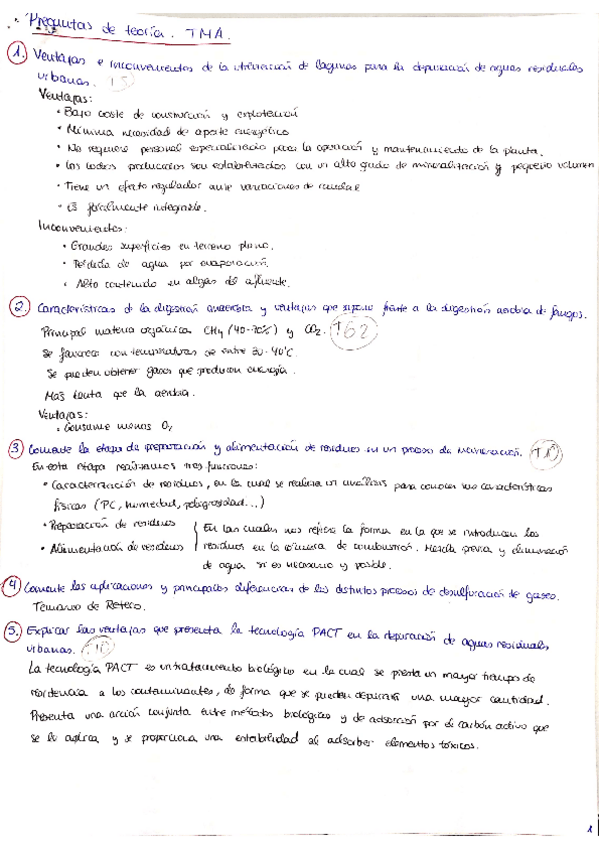 Preguntas de teoría. TMA.
1. Ventajas e inconvenientes de la utilización de lagunas para la depuración de aguas residuales
urbanas. T5
Ventajas:
• Bajo coste de construcción y explotación
• Mínima necesidad de aporte energético
• No requiere personal especializado para la operación y mantenimiento de la planta.
• Los lodos producidos son estabilizados con un alto grado de mineralización y pequeño volumen
• Tiene un efecto regulador ante variaciones de caudal
• Es fácilmente integrable.
Inconvenientes:
• Grandes superficies en terreno plano.
• Pérdida de agua por evaporación.
• Alto contenido en algas del efluente.
2. Características de la digestión anaerobia y ventajas que supone frente a la digestión aerobia de fangos.
Principal materia orgánica CH4 (40-70%) y CO2. T62
Se favorece con temperaturas de entre 30-40°C.
Se pueden obtener gases que producen energía.
Más lenta que la aerobia.
Ventajas:
• Consume menos O2
3. Comente la etapa de preparación y alimentación de residuos en un proceso de incineración. T10
En esta etapa realizamos tres funciones:
• Caracterización de residuos, en la cual se realiza un análisis para conocer sus características
físicas (PC, humedad, peligrosidad...)
• Preparación de residuos { En las cuales nos refiere la forma en la que se introducen los
• Alimentación de residuos residuos en la cámara de combustión. Mezcla previa y eliminación
de agua si es necesario y posible.
4. Comente las aplicaciones y principales diferencias de los distintos procesos de desulfuración de gases.
Temario de Reteco.
5. Explicar las ventajas que presenta la tecnología PACT en la depuración de aguas residuales
urbanas.
La tecnología PACT es un tratamiento biológico en la cual se presta un mayor tiempo de
residencia a los contaminantes, de forma que se pueden depurar una mayor cantidad.
Presenta una acción conjunta entre métodos biológicos y de adsorción por el carbón activo que
se le aplica y se proporciona una estabilidad al adsorber elementos tóxicos.
1